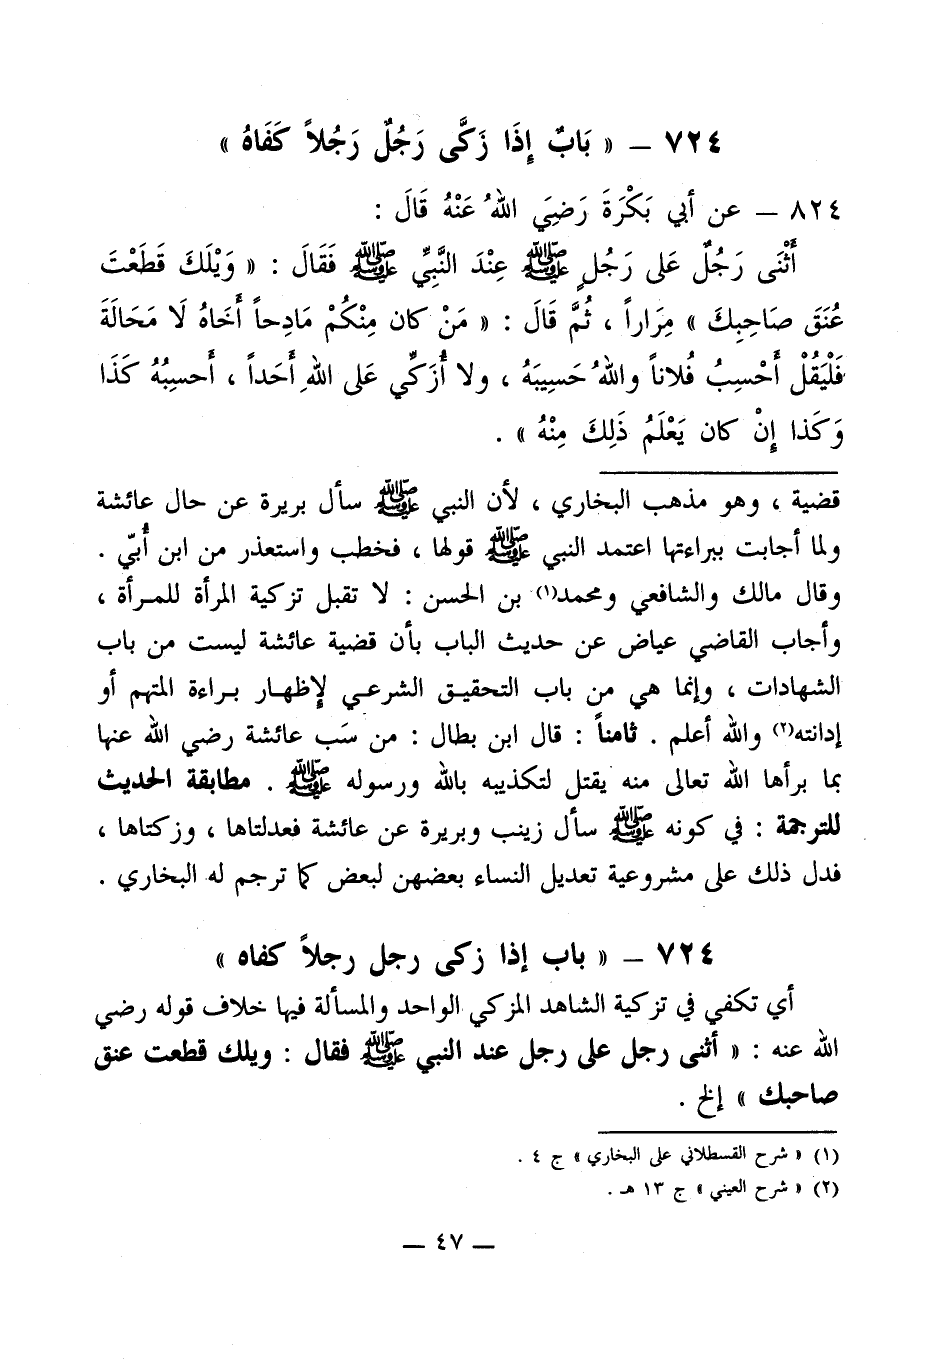 ٧٢٤ – « بَابٌ إِذَا زَكَّى رَجُلٌ رَجُلاً كَفَاهُ »
٨٢٤ – عن أبي بَكْرَةَ رَضِيَ اللهُ عَنْهُ قَالَ :
أَثْنَى رَجُلٌ عَلى رَجُلٍ ﷺ عِنْدَ النَّبِيِّ ﷺ فَقَالَ : « وَيْلَكَ قَطَعْتَ
عُنَقَ صَاحِبِكَ » مِرَاراً ، ثُمَّ قَالَ : « مَنْ كان مِنْكُمْ مَادِحاً أَخَاهُ لَا مَحَالَةَ
فَلْيَقُلْ أَحْسِبُ فُلاناً واللهُ حَسِيبَهُ ، ولا أُزَكِّي عَلى اللهِ أَحَداً ، أَحسِبُهُ كَذَا
وَكَذا إِنْ كان يَعْلَمُ ذَلِكَ مِنْهُ » .
قضية ، وهو مذهب البخاري ، لأن النبي ﷺ سأل بريرة عن حال عائشة
ولما أجابت ببراءتها اعتمد النبي ﷺ قولها ، فخطب واستعذر من ابن أُبيّ .
وقال مالك والشافعي ومحمد(١) بن الحسن : لا تقبل تزكية المرأة للمرأة ،
وأجاب القاضي عياض عن حديث الباب بأن قضية عائشة ليست من باب
الشهادات ، وإنما هي من باب التحقيق الشرعي لإظهار براءة المتهم أو
إدانته(٢) والله أعلم . ثامناً : قال ابن بطال : من سَب عائشة رضي الله عنها
بما برأها الله تعالى منه يقتل لتكذيبه بالله ورسوله ﷺ . مطابقة الحديث
للترجمة : في كونه ﷺ سأل زينب وبريرة عن عائشة فعدلتاها ، وزكتاها ،
فدل ذلك على مشروعية تعديل النساء بعضهن لبعض كما ترجم له البخاري .
٧٢٤ – « باب إذا زكى رجل رجلاً كفاه »
أي تكفي في تزكية الشاهد المزكي الواحد والمسألة فيها خلاف قوله رضي
الله عنه : « أثنى رجل على رجل عند النبي ﷺ فقال : ويلك قطعت عنق
صاحبك » إلخ .
(١) « شرح القسطلاني على البخاري » ج ٤ .
(٢) « شرح العيني » ج ١٣ هـ .
– ٤٧ –